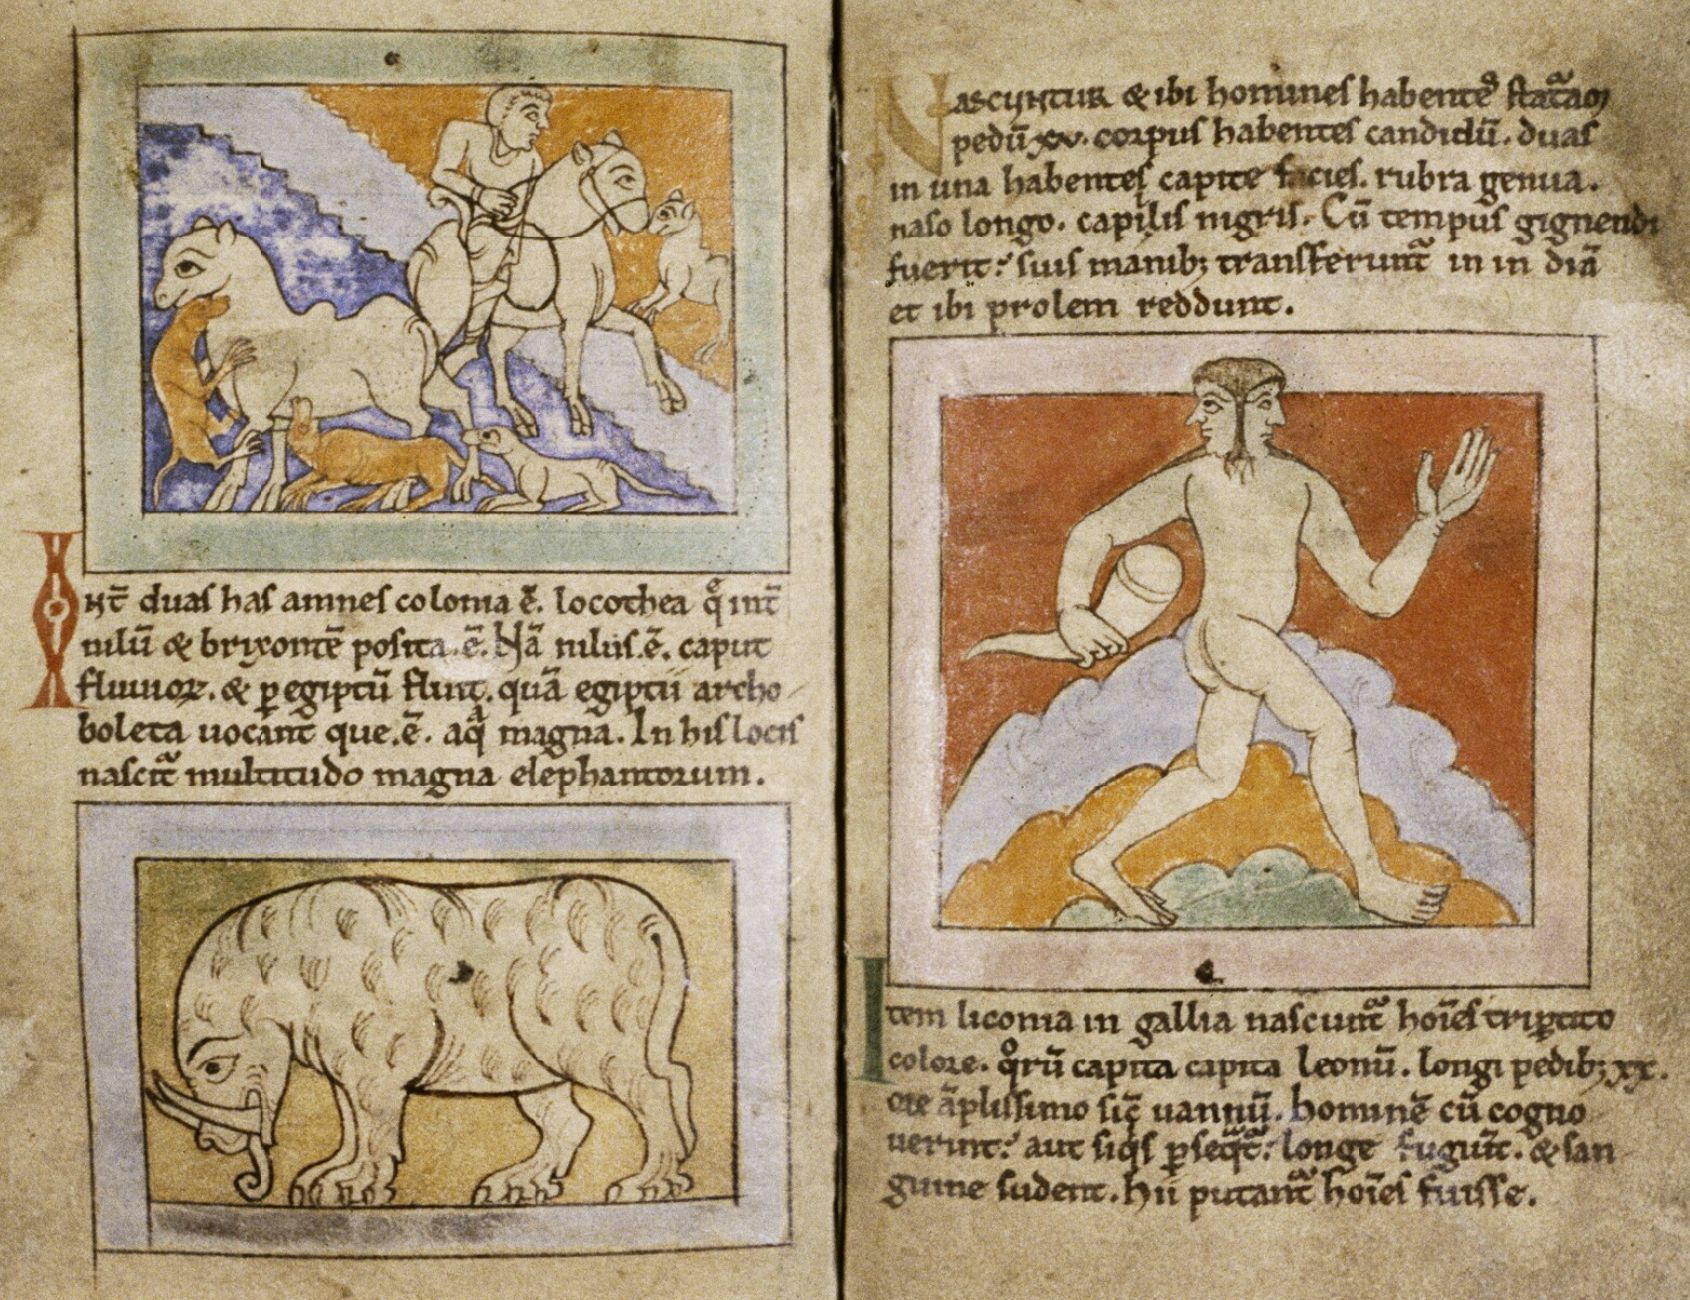 Int̄ duas has amnes colonia ē. locothea q̊ int̄
nilū & brixontē posita .ē. Nā nilus .ē. caput
fluuioꝝ. & ꝑ egiptū fluit. quā egiptii archo
boleta uocant que .ē. aq̄ magna. In his locis
nascit̄ multitudo magna elephantorum.
Nascuntur & ibi homines habentes statāō
pedū xv. corpus habentes candidū. duas
in una habentes capite facies. rubra genua.
naso longo. capillis nigris. Cū tempus gignendi
fuerit: suis manibꝫ transferunt̄ in in diā
et ibi prolem reddunt.
Item liconia in gallia nascunt̄ hoīes tripertito
colore. qͦrū capita capita leonū. longi pedibꝫ xx.
ore āplissimo sic̄ uannū. hominē cū cogno
uerint: aut siq̄s ꝑseqͣt̄: longe fugiūt. & san
guine sudent. hii putant̄ hoīes fuisse.